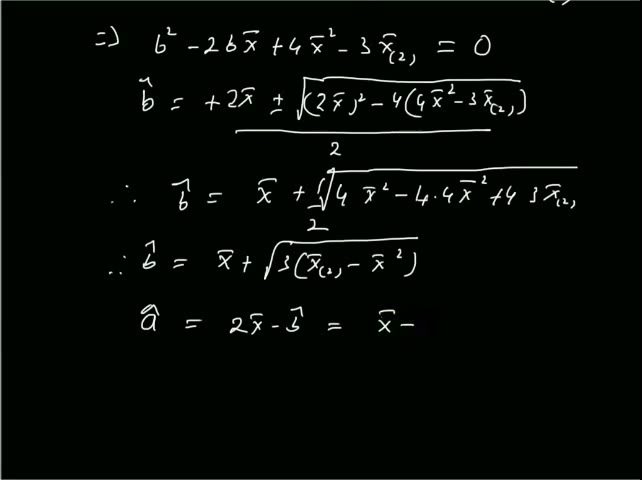 ⇒ b² - 2bx̄ + 4x̄² - 3x̄₍₂₎ = 0
b̂ = +2x̄ ± √((2x̄)² - 4(4x̄² - 3x̄₍₂₎)) / 2
∴ b̂ = x̄ + 1/2 √(4x̄² - 4·4x̄² + 4 3x̄₍₂₎
∴ b̂ = x̄ + √(3(x̄₍₂₎ - x̄²))
â = 2x̄ - b̂ = x̄ -